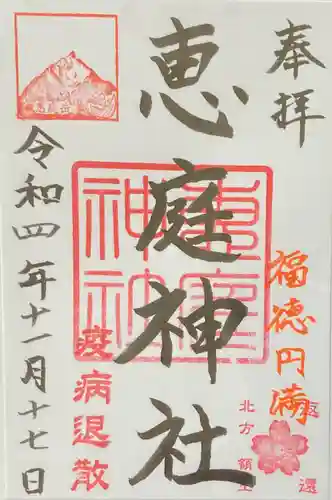 奉拝
福徳円満
返還
北方領土
恵庭神社
恵庭神社
疫病退散
令和四年十一月十七日